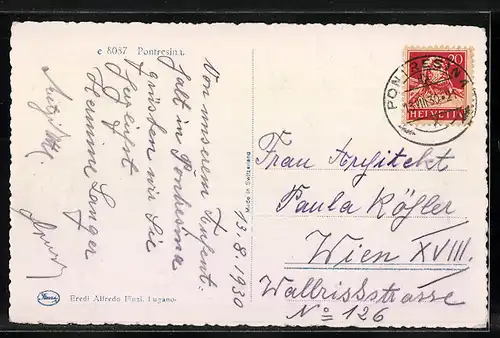 e 8087 Pontresina.
Von unserem Aufent-
halt in Pontresina
grüßen wir Sie
herzlichst
Hermine Langer
13.8.1930
Made in Switzerland
Eredi Alfredo Finzi. Lugano.
20
HELVETIA
PONTRESINA
Frau Architekt
Paula Köfler
Wien XVIII.
Wallrissstrasse
No 126